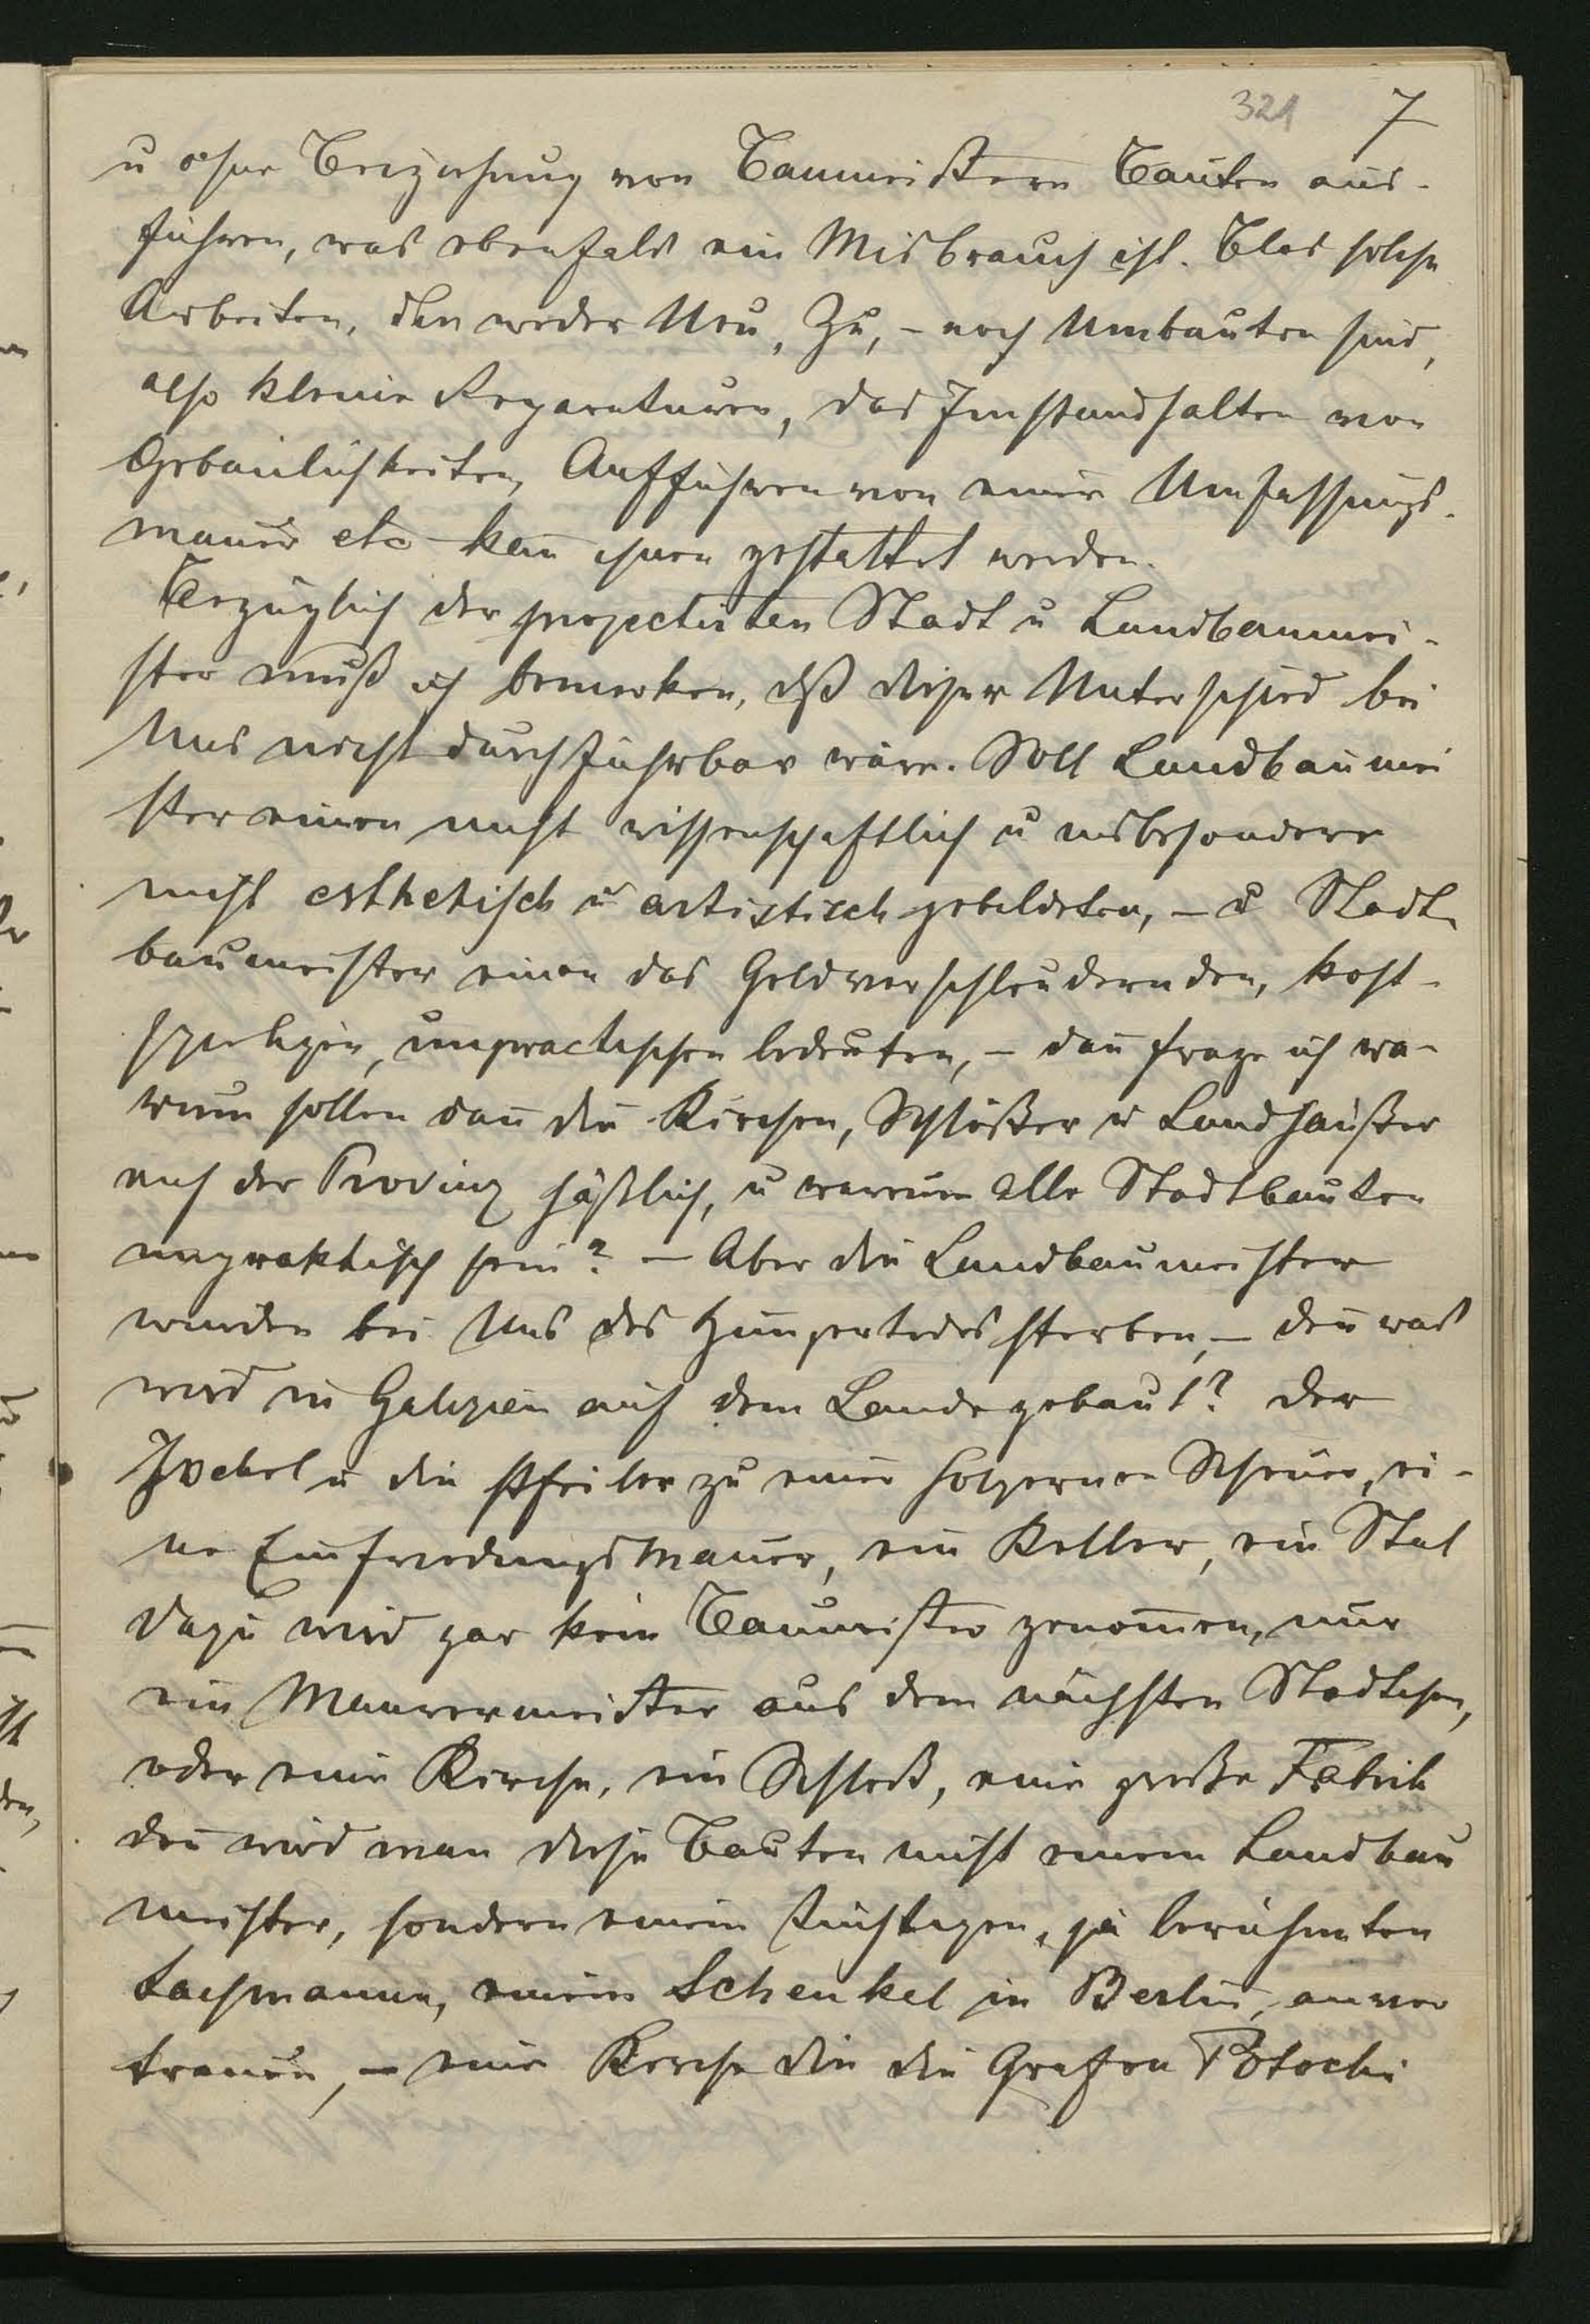 321 7
u ohne Beiziehung von Baumeistern Bauten aus-
führen, was ebenfals ein Misbrauch ist. Blos solche
Arbeiten, die weder Neu, Zu, - noch Umbauten sind,
also kleine Reparaturen, das Instandhalten von
Gebäulichkeiten, Aufführen von einer Umfassungs-
mauer etc kan̄ ihnen gestattet werden.
Bezüglich der projectirten Stadt u Landbaumei-
ster muß ich bemerken, dß dieser Unterschied bei
Uns nicht durchführbar wäre. Soll Landbaumei
ster einen nicht wissenschaftlich u insbesondere
nicht esthetisch u artistisch gebildeten, - u Stadt-
baumeister einen das Geldverschleudernden, kost-
spieligen, unpractischen bedeuten, - dan̄ frage ich wa-
rum sollen dan̄ die Kirchen, Schlößer u Landhäußer
auf der Provinz häßlich, u warum alle Stadtbauten
unpraktisch sein? - Aber die Landbaumeister
würden bei Uns des Hungertodes sterben, - den̄ was
wird in Galizien auf dem Lande gebaut? Der
Sockel u die Pfeiler zu einer holzernen Scheuer, ei-
ne Einfriedungsmauer, ein Keller, ein Stal
dazu wird gar kein Baumeister genom̄en, nur
ein Maurermeister aus dem nächsten Städtchen,
oder eine Kirche, ein Schloß, eine große Fabrik
den̄ wird man diese Bauten nicht einem Landbau
meister, sondern einem tüchtigen, ja berühmten
Fachmanne, einem Schenkel in Berlin, anver
trauen, - eine Kirche die die Grafen Potocki